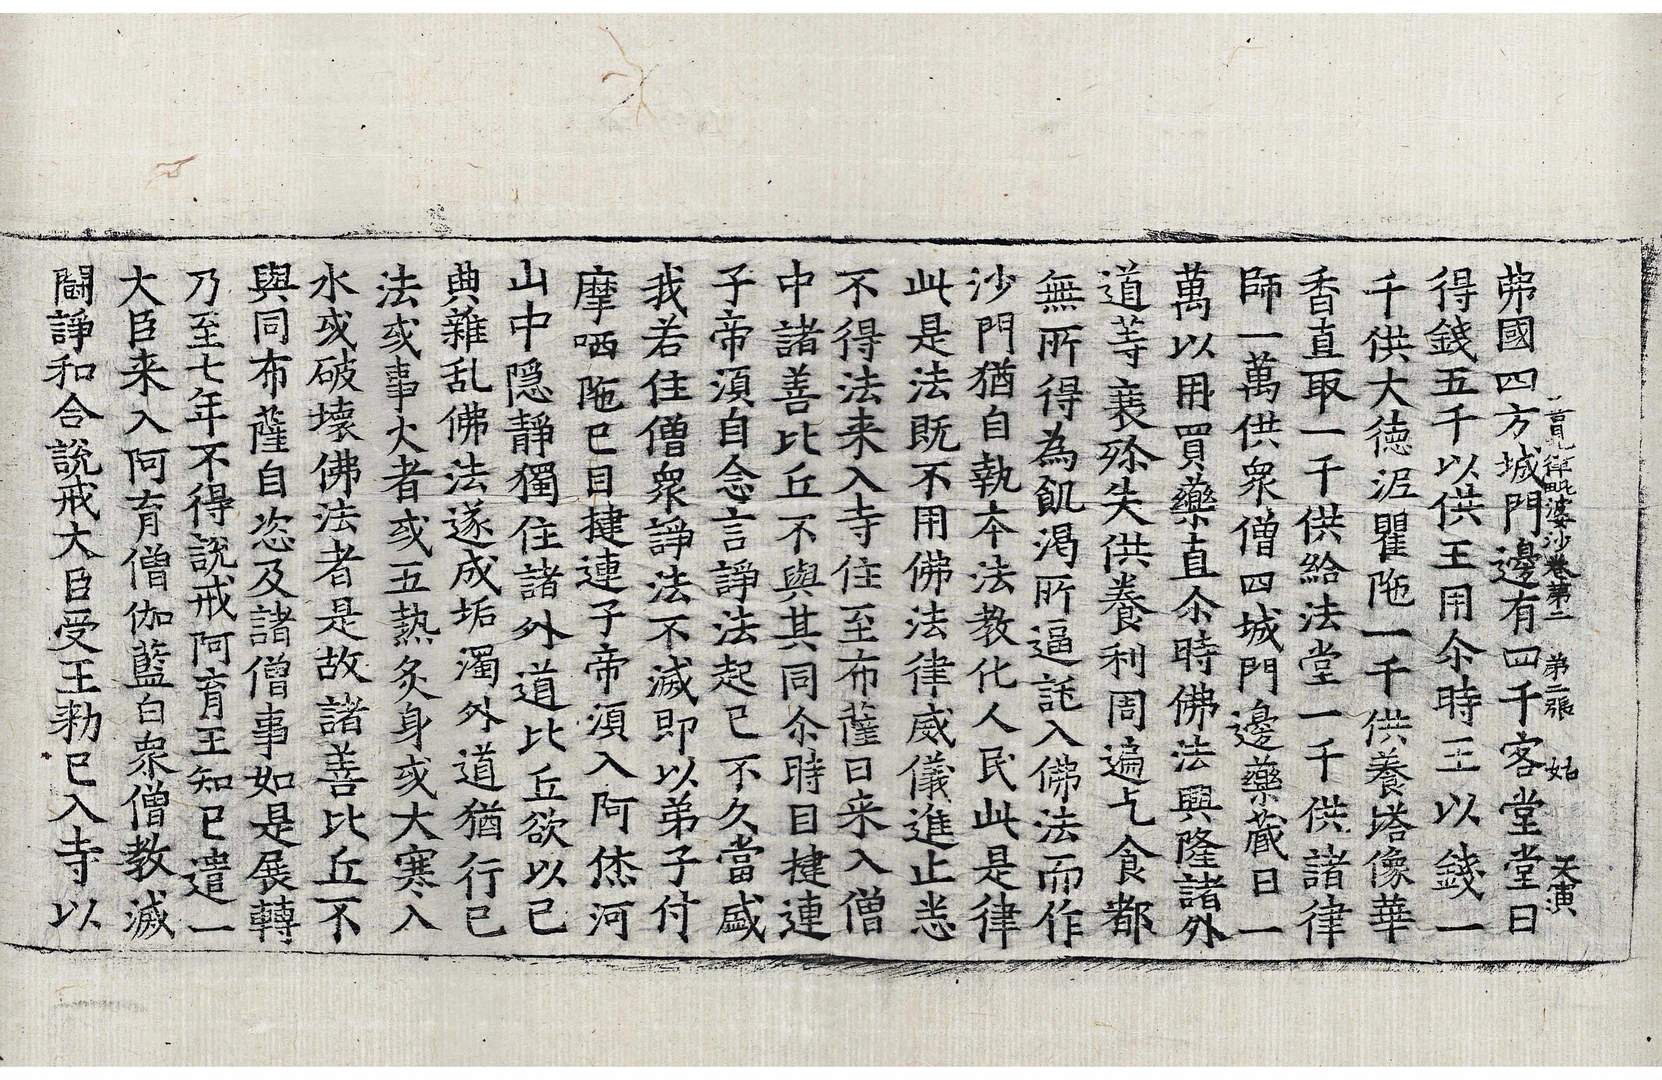 善見律毗婆沙卷第二 第二張 始 天演
弗國四方城門邊有四千客堂堂日
得錢五千以供王用尒時王以錢一
千供大德泥瞿陁一千供養塔像華
香直取一千供給法堂一千供諸律
師一萬供衆僧四城門邊藥藏日一
萬以用買藥直尒時佛法興隆諸外
道等衰殄失供養利周遍乞食都
無所得為飢渴所逼託入佛法而作
沙門猶自執夲法教化人民此是律
此是法既不用佛法律威儀進止悉
不得法来入寺住至布薩日来入僧
中諸善比丘不與其同尒時目揵連
子帝湏自念言諍法起已不久當盛
我若住僧衆諍法不滅即以弟子付
摩哂陁已目揵連子帝湏入阿烋河
山中隱靜獨住諸外道比丘欲以己
典雜乱佛法遂成垢濁外道猶行己
法或事火者或五熱炙身或大寒入
水或破壞佛法者是故諸善比丘不
與同布薩自恣及諸僧事如是展轉
乃至七年不得說戒阿育王知已遣一
大臣来入阿育僧伽藍白衆僧教滅
鬪諍和合說戒大臣受王勑已入寺以